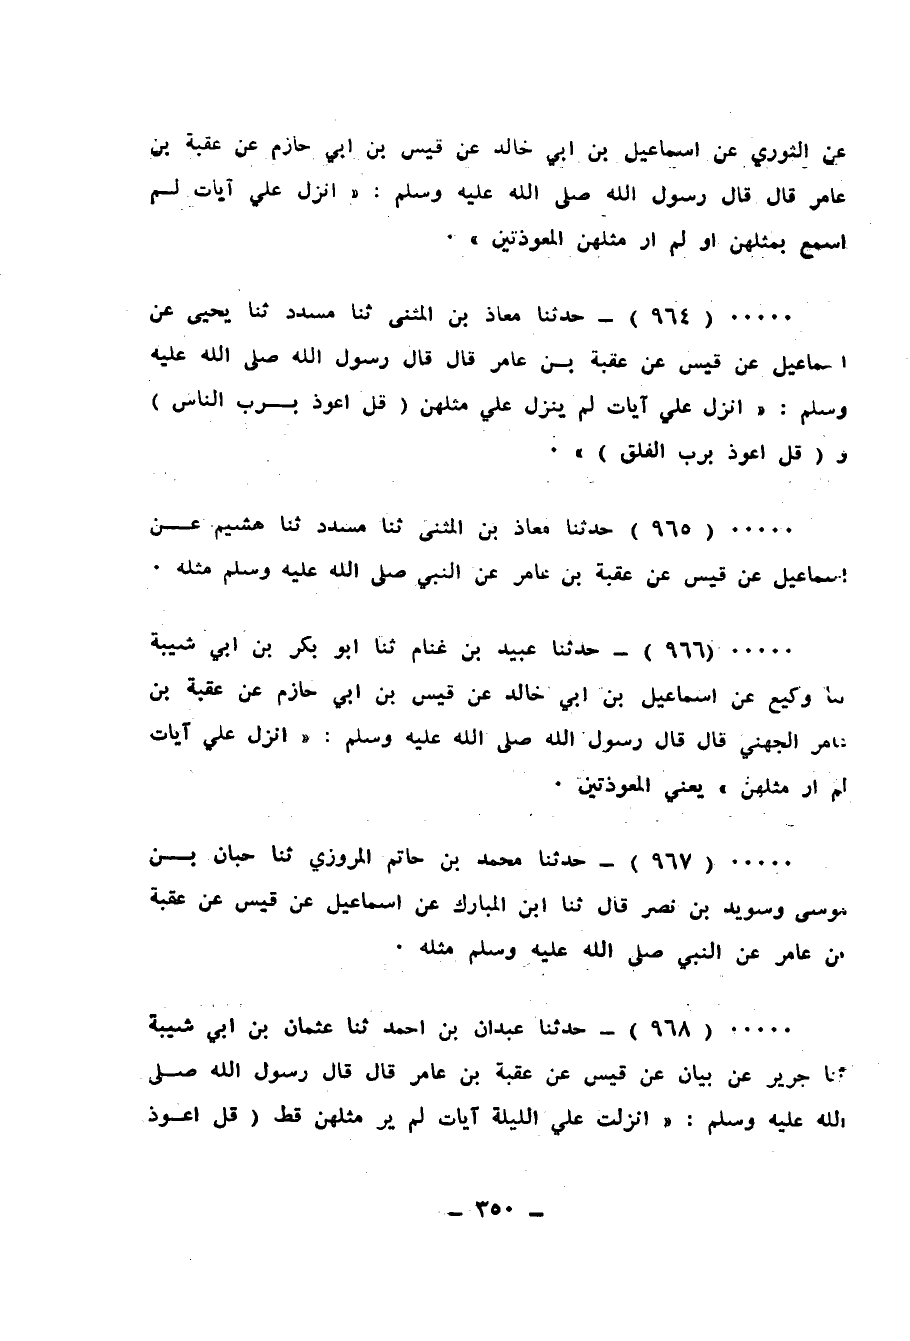 عن الثوري عن اسماعيل بن ابي خالد عن قيس بن ابي حازم عن عقبة بن
عامر قال قال رسول الله صلى الله عليه وسلم : « انزل علي آيات لــم
اسمع بمثلهن او لم ار مثلهن المعوذتين » ٠
٠٠٠٠٠ ( ٩٦٤ ) ــ حدثنا معاذ بن المثنى ثنا مسدد ثنا يحيى عن
اسماعيل عن قيس عن عقبة بــن عامر قال قال رسول الله صلى الله عليه
وسلم : « انزل علي آيات لم ينزل علي مثلهن ( قل اعوذ بــــرب الناس )
و ( قل اعوذ برب الفلق ) » ٠
٠٠٠٠٠ ( ٩٦٥ ) حدثنا معاذ بن المثنى ثنا مسدد ثنا هشيم عــــن
اسماعيل عن قيس عن عقبة بن عامر عن النبي صلى الله عليه وسلم مثله ٠
٠٠٠٠٠ (٩٦٦ ) ــ حدثنا عبيد بن غنام ثنا ابو بكر بن ابي شيبة
ثنا وكيع عن اسماعيل بن ابي خالد عن قيس بن ابي حازم عن عقبة بن
عامر الجهني قال قال رسول الله صلى الله عليه وسلم : « انزل علي آيات
لم ار مثلهن » يعني المعوذتين ٠
٠٠٠٠٠ ( ٩٦٧ ) ــ حدثنا محمد بن حاتم المروزي ثنا حبان بــــن
موسى وسويد بن نصر قال ثنا ابن المبارك عن اسماعيل عن قيس عن عقبة
بن عامر عن النبي صلى الله عليه وسلم مثله ٠
٠٠٠٠٠ ( ٩٦٨ ) ــ حدثنا عبدان بن احمد ثنا عثمان بن ابي شيبة
ثنا جرير عن بيان عن قيس عن عقبة بن عامر قال قال رسول الله صــلى
الله عليه وسلم : « انزلت علي الليلة آيات لم ير مثلهن قط ( قل اعــوذ
ــ ٣٥٠ ــ